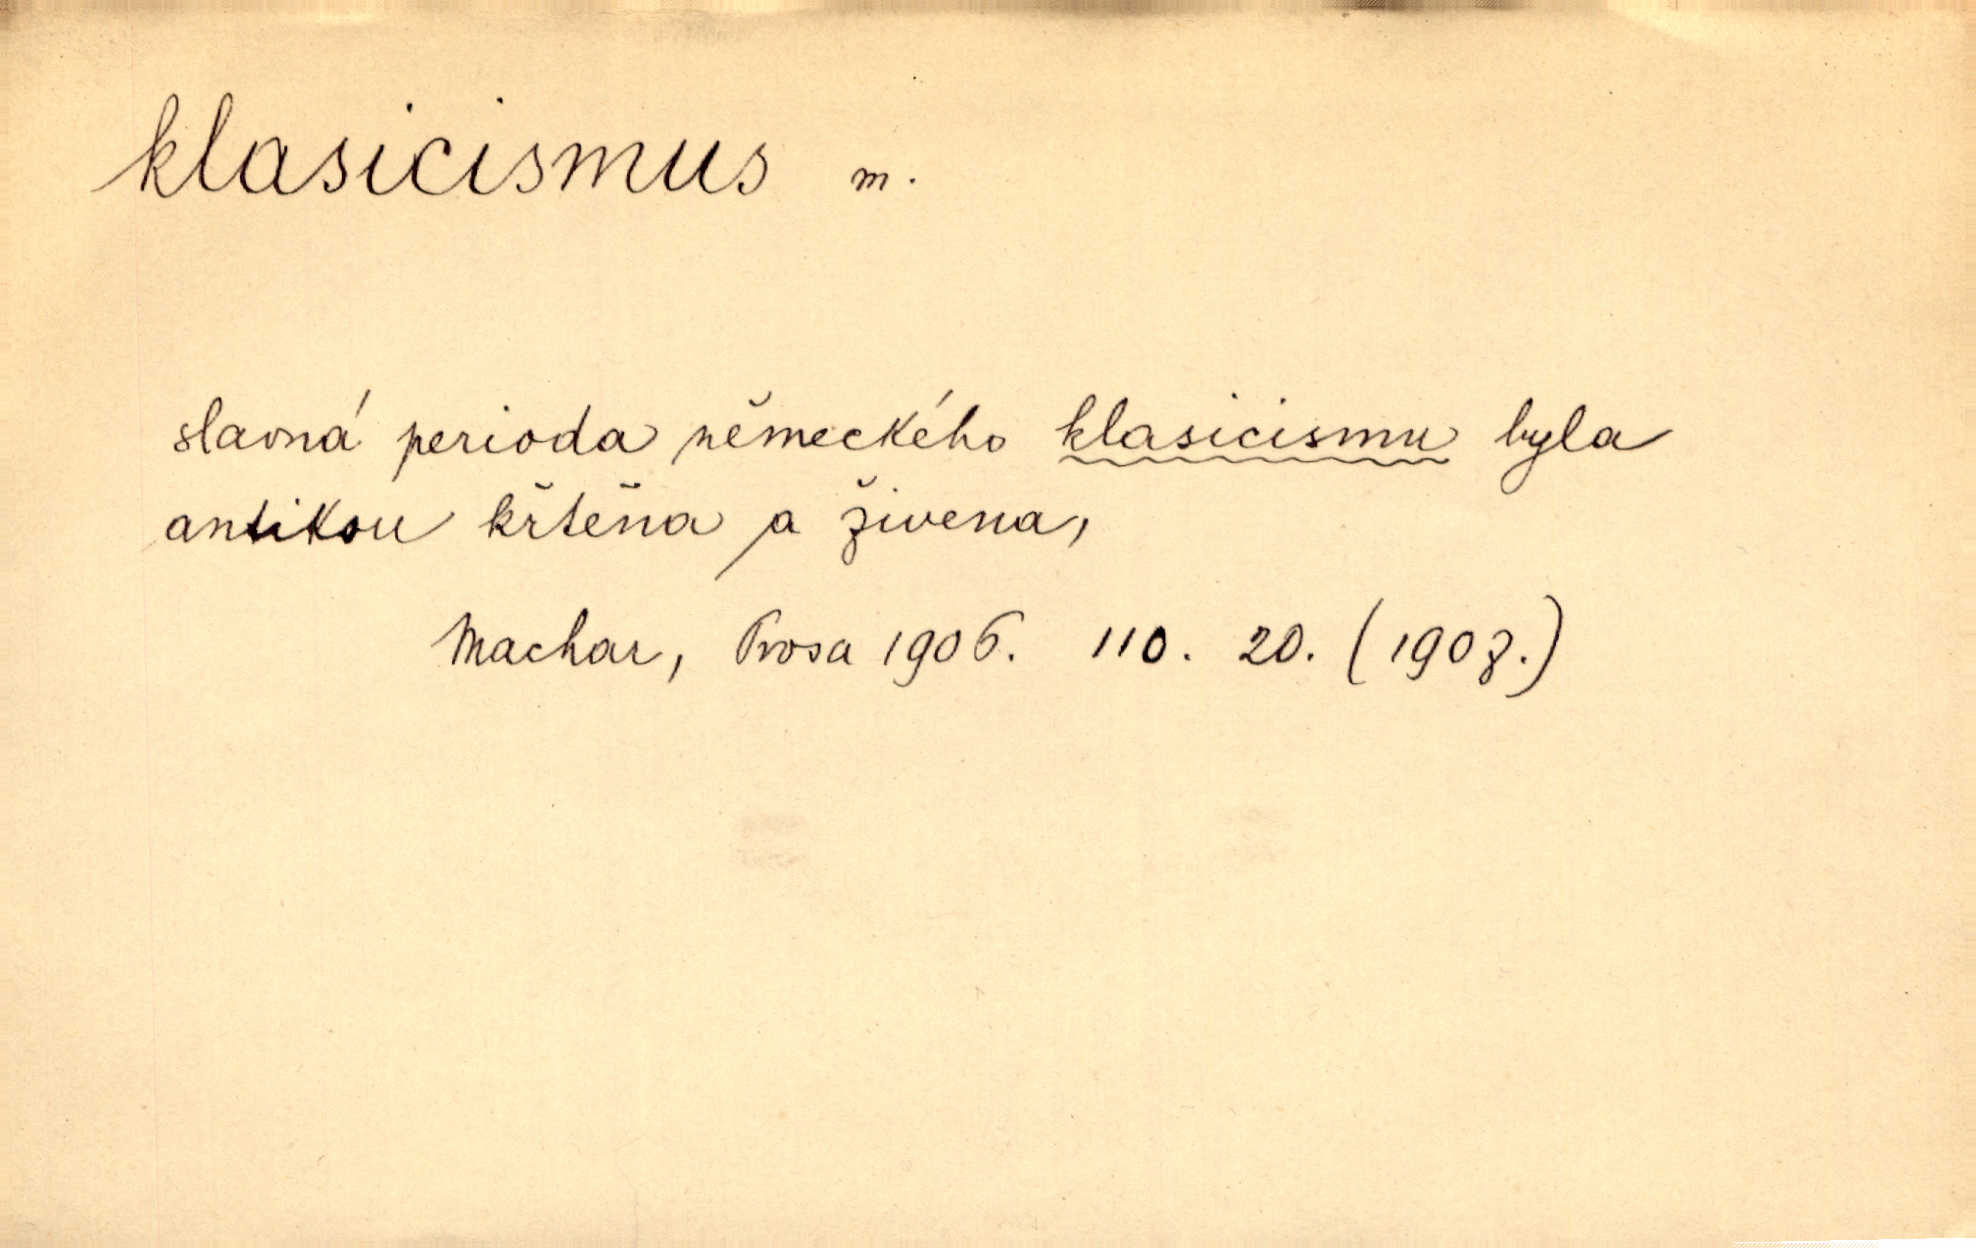 klasicismus m.
slavná perioda německého klasicismu byla
antikou křtěna a živena,
Machar, Prosa 1906. 110. 20. (1903.)